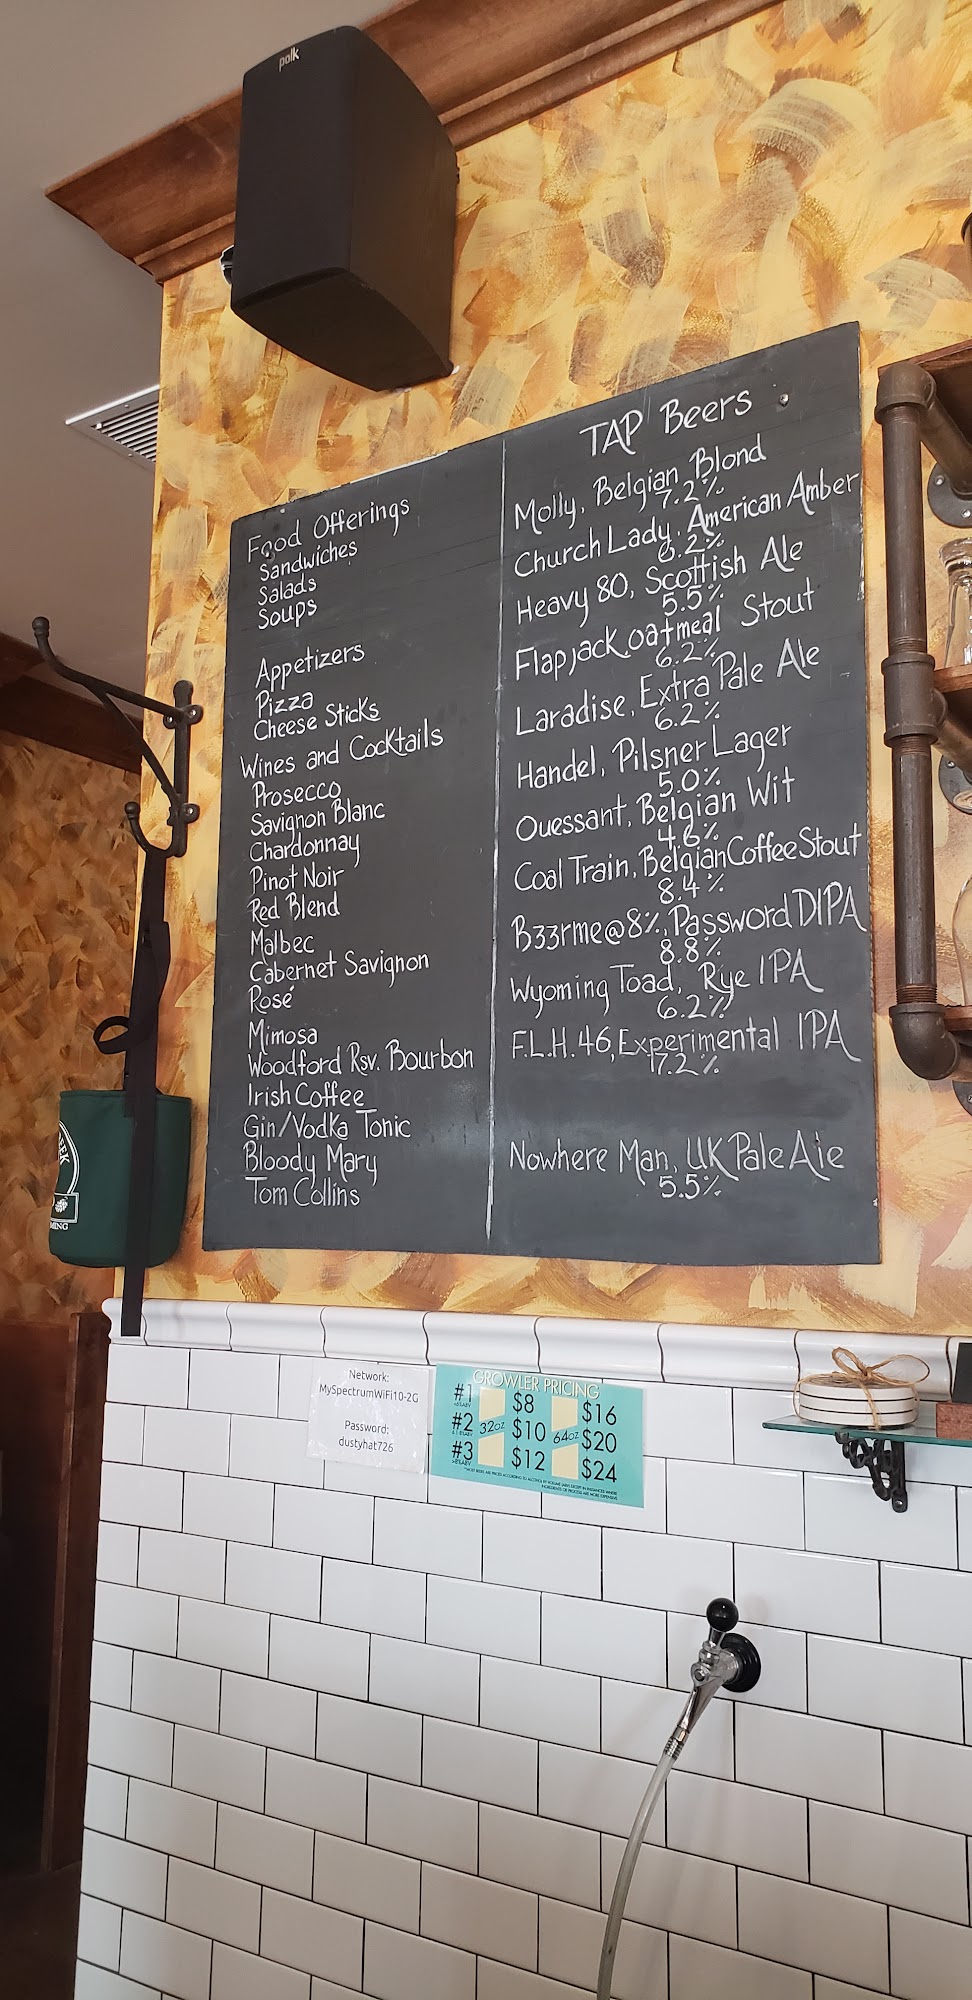 polk
Food Offerings
Sandwiches
Salads
Soups
Appetizers
Pizza
Cheese Sticks
Wines and Cocktails
Prosecco
Savignon Blanc
Chardonnay
Pinot Noir
Red Blend
Malbec
Cabernet Savignon
Rosé
Mimosa
Woodford Rsv. Bourbon
Irish Coffee
Gin/Vodka Tonic
Bloody Mary
Tom Collins
TAP Beers
Molly, Belgian Blond
7.2%
Church Lady, American Amber
6.2%
Heavy 80, Scottish Ale
5.5%
Flapjack, oatmeal Stout
6.2%
Laradise, Extra Pale Ale
6.2%
Handel, Pilsner Lager
5.0%
Ouessant, Belgian Wit
4.6%
Coal Train, Belgian Coffee Stout
8.4%
B33rme@8%, Password DIPA
8.8%
Wyoming Toad, Rye IPA
6.2%
F.L.H. 46, Experimental IPA
17.2%
Nowhere Man, UK Pale Ale
5.5%
Network:
MySpectrumWiFi10-2G
Password:
dustyhat726
GROWLER PRICING
#1 $8 $16
#2 32oz $10 64oz $20
#3 $12 $24